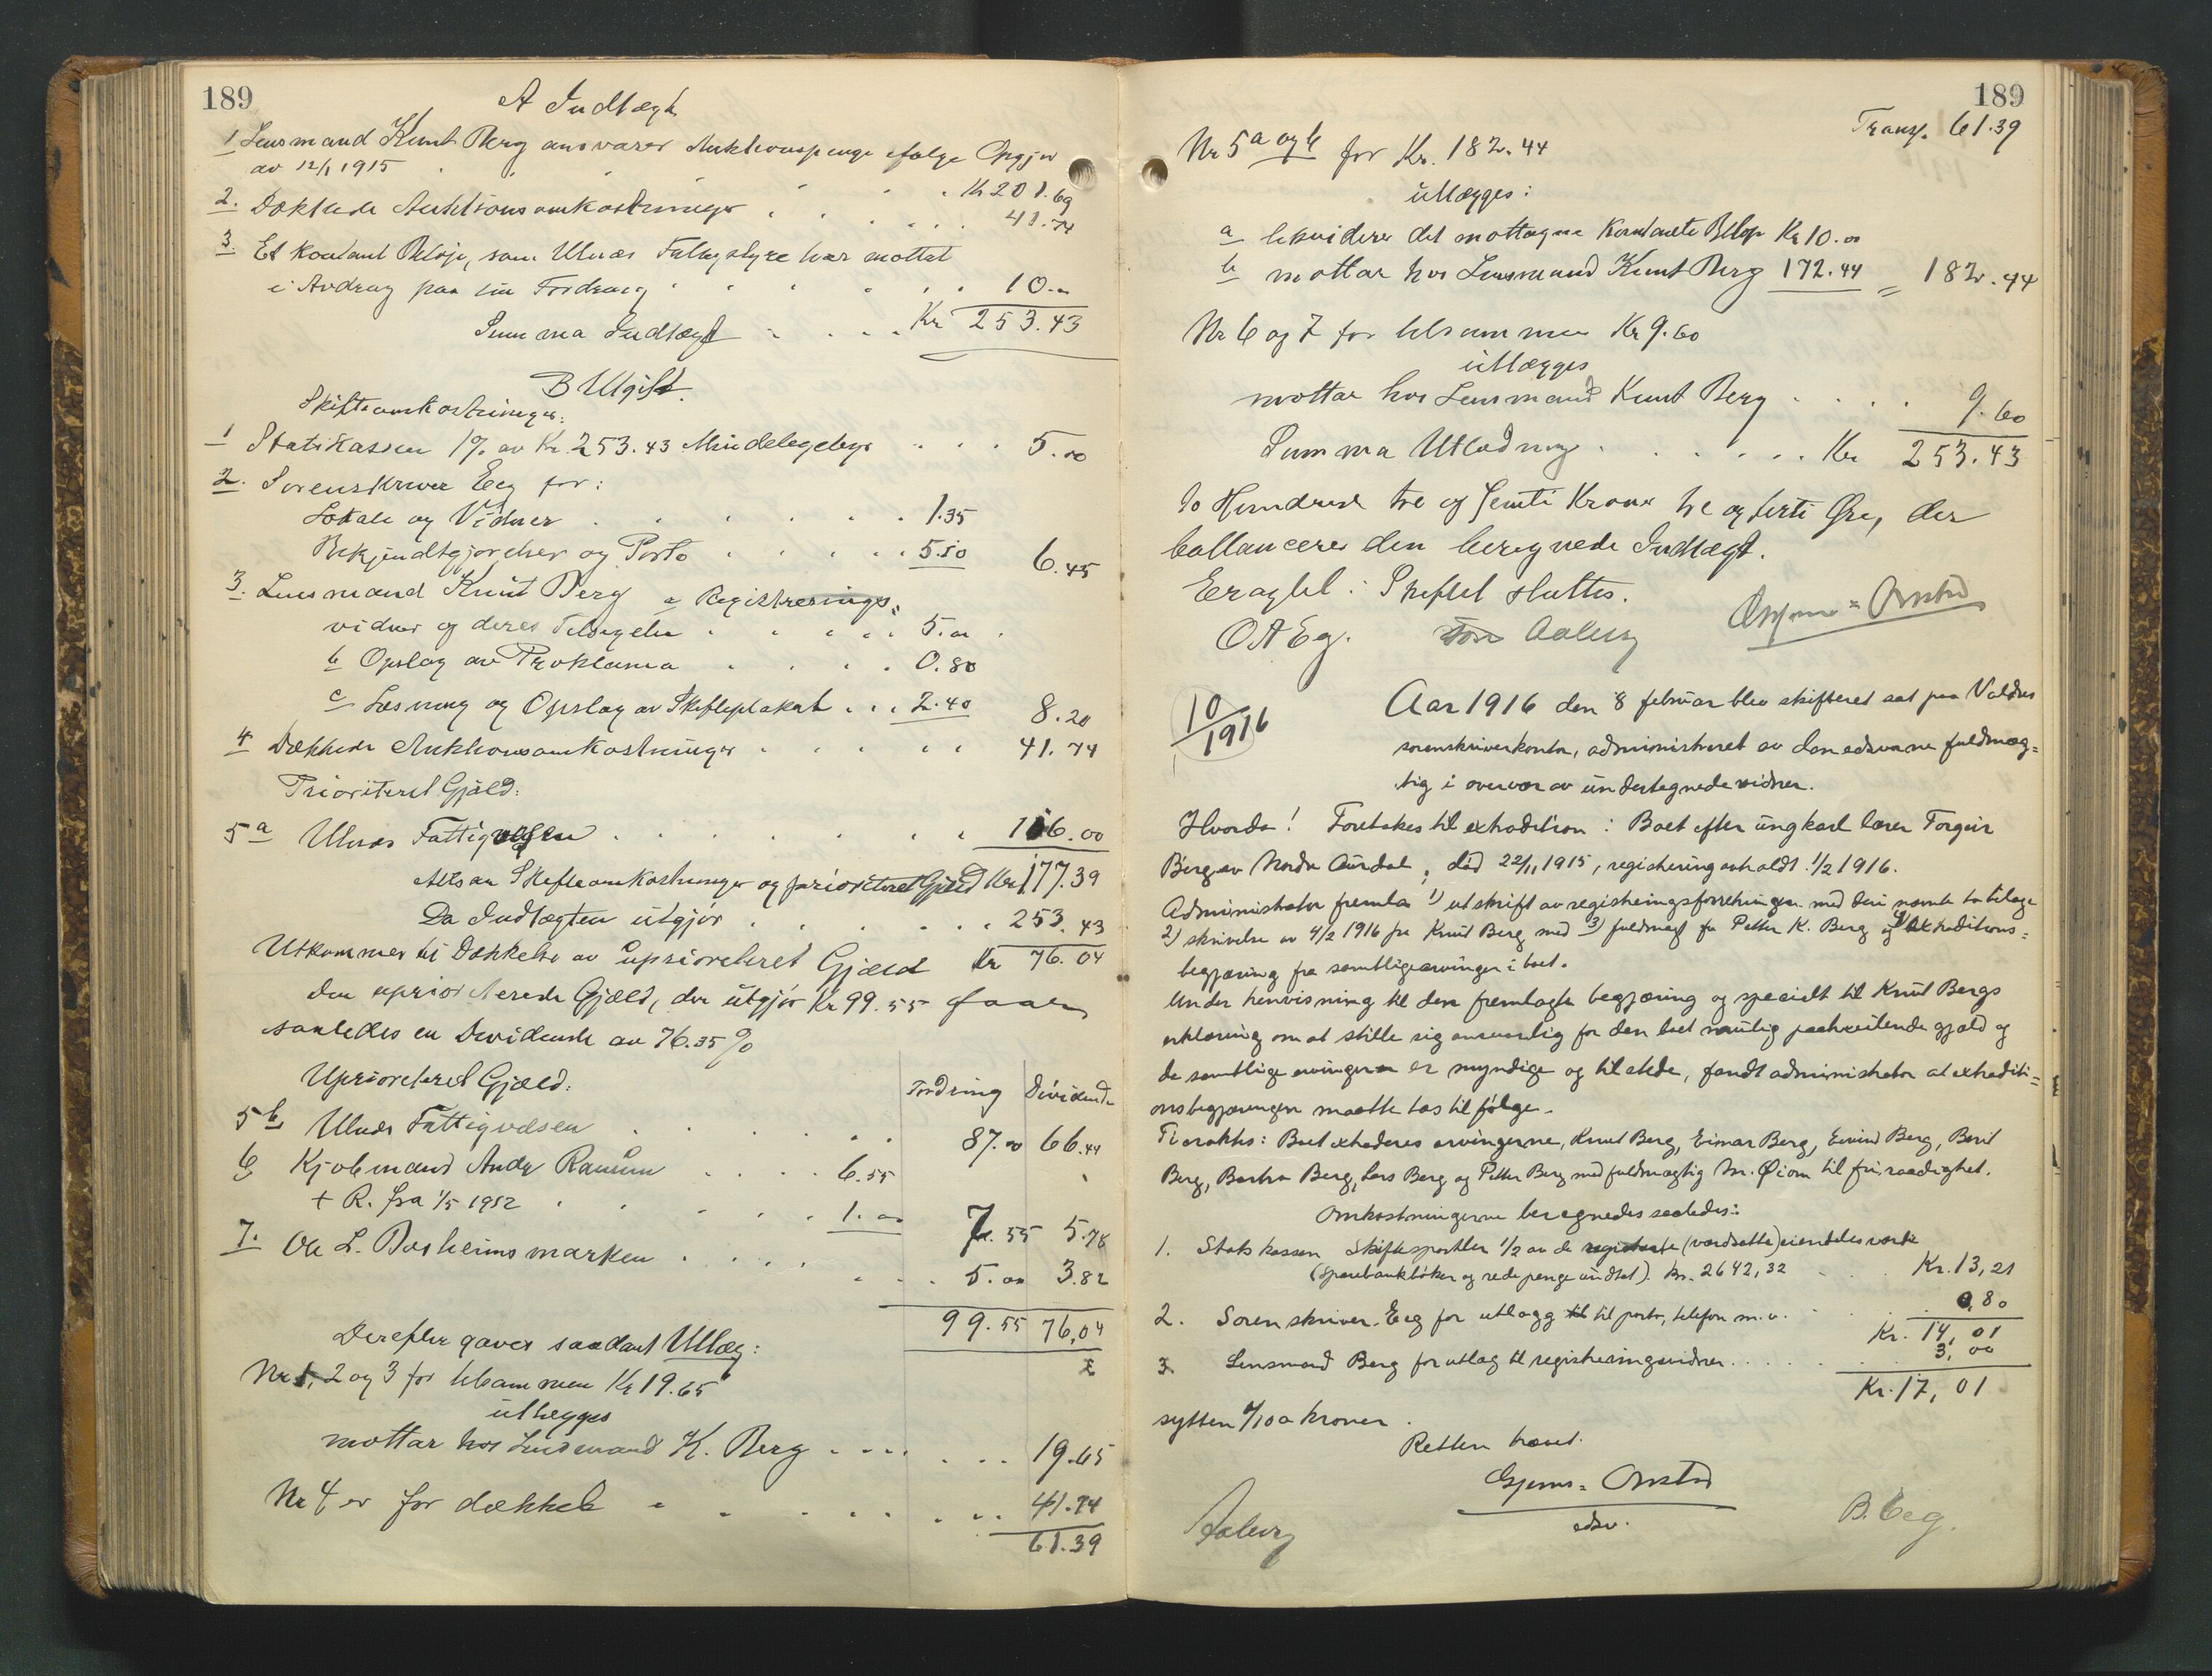 189
A Indtægt
1 Lensmand Knut Berg ansvarer Auktionspenge ifølge Opgjør
av 12/1 1915 . . . . . . Kr 201.69
2. Dækkede Auktionsomkostninger . . . . . 41.74
3. Et kontant Beløp, som Ulnæs Fattigstyre har mottat
i Avdrag paa sin Fordring . . . . . 10.-
Summa Indtægt . . . . Kr 253.43
B Utgift.
Skifteomkostninger:
1 Statskassen 1% av Kr. 253.43 Mindstegebyr . . . 5.00
2. Sorenskriver Eeg for:
Lokale og Vidner . . . . . . 1.35
Bekjendtgjørelser og Porto . . . . . 5.10 6.45
3. Lensmand Knut Berg a Registrerings-
vidner og deres Tilsigelse . . . . . 5.00
b Opslag av Proklama . . . . 0.80
c Læsning og Opslag av Skifteplakat . . . 2.40 8.20
4 Dækkede Auktionsomkostninger . . . . . 41.74
Prioritert Gjæld:
5 a Ulnæs Fattigvæsen . . . . . . . 116.00
Altsaa Skifteomkostninger og prioriteret Gjæld Kr 177.39
Da Indtægten utgjør . . . . . . 253.43
Utkommer til Dækkelse av uprioriteret Gjæld Kr 76.04
Den uprioriterede Gjæld, der utgjør Kr 99.55 faar
saaledes en Dividende av 76.35%
Uprioriteret Gjæld: Fordring Dividende
5 b Ulnæs Fattigvæsen . . . . . . 87.00 66.44
6 Kjøbmand Andr Ranum . . . . 6.55
+ R. fra 1/5 1912 . . . . . 1.00 7.55 5.78
7. Ole L. Dosheimsmarken . . . . . . . 5.00 3.82
99.55 76,04
Derefter gaves saadant Utlæg:
Nr 1, 2 og 3 for tilsammen Kr 19.65
utlægges
mottar hos Lensmand K. Berg . . . . . . . 19.65
Nr 4 er før dækket . . . . . . . . 41.74
61.39
189
Transp. 61.39
Nr 5 a og b for Kr. 182.44
utlægges:
a likviderer det mottagne kontante Beløp Kr 10.00
b mottar hos Lensmand Knut Berg 172.44 = 182.44
Nr 6 og 7 for tilsammen Kr 9.60
utlægges
mottar hos Lensmand Knut Berg . . . . 9.60
Summa Utlodning . . . . . . Kr 253.43
to Hundrede tre og femti Kroner tre og førti Øre, der
ballancerer den beregnede Indtægt.
Eragtet: Skiftet sluttes.
O A Eg. Aaberg Gjems=Onstad
10/1916
Aar 1916 den 8 februar blev skifteret sat paa Valdres
sorenskriverkontor, administreret av den edsvorne fuldmæg=
tig i overvær av undertegnede vidner.
Hvorda! Foretakes til extradition: Boet efter ungkarl lærer Torgeir
Berg av Nordre Aurdal, død 22/11 1915, registrering avholdt 1/2 1916.
Administrator fremla 1) utskrift av registreringsforretningen med deri nævnte to bilage
2) skrivelse av 4/2 1916 fra Knut Berg med 3) fuldmagt fra Petter K. Berg og 4) Extraditions=
begjæring fra samtlige arvinger i boet.
Under henvisning til den fremlagte begjæring og specielt til Knut Bergs
erklæring om at stille sig ansvarlig for den boet mulig paahvilende gjæld og
da samtlige arvinger er myndige og tilstede, fandt administrator at extraditi=
onsbegjæringen maatte tas tilfølge.
Ti eraktes: Boet extraderes arvingerne, Knut Berg, Eimar Berg, Eivind Berg, Berit
Berg, Barbra Berg, Lars Berg og Petter Berg med fuldmægtig M. Øiom til fri raadighet.
Omkostningerne beregnedes saaledes:
1. Statskassen Skiftesportler 1/2 av de registrerte (værdsatte) eiendeles værdi
(Sparebankbøker og rede penge undtat). Kr. 2642,32 . . . Kr. 13,21
2. Sorenskriver Eeg for utlægg til porto, telefon m.v. . . . . 0,80
Kr. 14,01
3. Lensmand Berg for utlæg til registreringsvidner . . . . . . 3,00
Kr. 17,01
sytten 1/100 kroner.
Retten hævet.
Gjems=Onstad
edsv.
Aaberg
B. Eeg.